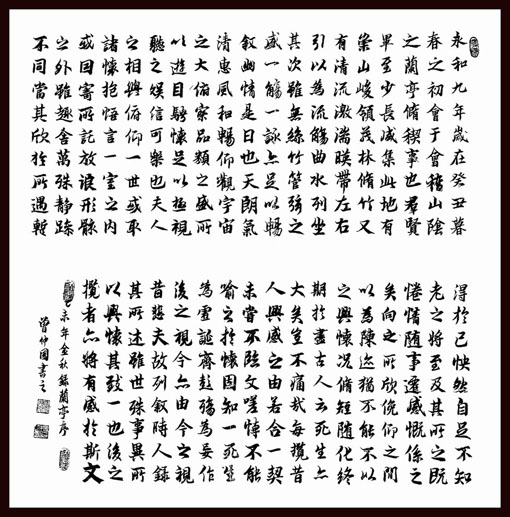 永和九年歲在癸丑暮
春之初會于會稽山陰
之蘭亭脩稧事也羣賢
畢至少長咸集此地有
崇山峻領茂林脩竹又
有清流激湍暎帶左右
引以為流觴曲水列坐
其次雖無絲竹管弦之
盛一觴一詠亦足以暢
叙幽情是日也天朗氣
清惠風和暢仰觀宇宙
之大俯察品類之盛所
以遊目騁懷足以極視
聽之娛信可樂也夫人
之相與俯仰一世或取
諸懷抱悟言一室之內
或因寄所託放浪形骸
之外雖趣舍萬殊静躁
不同當其欣於所遇暫
得於己怏然自足不知
老之將至及其所之既
惓情隨事遷感慨係之
矣向之所欣俛仰之間
以為陳迹猶不能不以
之興懷況脩短隨化終
期於盡古人云死生亦
大矣豈不痛哉每攬昔
人興感之由若合一契
未嘗不臨文嗟悼不能
喻之於懷固知一死生
為虛誕齊彭殤為妄作
後之視今亦由今之視
昔悲夫故列叙時人錄
其所述雖世殊事異所
以興懷其致一也後之
攬者亦將有感於斯文
乙未年金秋錄蘭亭序
曾仲國書之